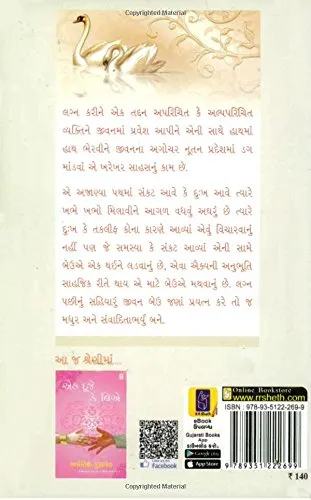 લગ્ન કરીને એક તદ્દન અપરિચિત કે અલ્પપરિચિત
વ્યક્તિને જીવનમાં પ્રવેશ આપીને એની સાથે હાથમાં
હાથ ભેરવીને જીવનના અગોચર નૂતન પ્રદેશમાં ડગ
માંડવાં એ ખરેખર સાહસનું કામ છે.
એ અજાણ્યા પથમાં સંકટ આવે કે દુઃખ આવે ત્યારે
ખભે ખભો મિલાવીને આગળ વધવું અઘરું છે ત્યારે
દુઃખ કે તકલીફ કોના કારણે આવ્યાં એવું વિચારવાનું
નહીં પણ જે સમસ્યા કે સંકટ આવ્યાં એની સામે
બેઉએ એક થઈને લડવાનું છે, એવા ઐક્યની અનુભૂતિ
સાહજિક રીતે થાય એ માટે બેઉએ મથવાનું છે. લગ્ન
પછીનું સહિયારું જીવન બેઉ જણાં પ્રયત્ન કરે તો જ
મધુર અને સંવાદિતાભર્યું બને.
આ જ શ્રેણીમાં...
એક દૂજે
કે લિએ
Find us on
Facebook
eBook
Gujarati Books
App
Google play
App Store
Online Bookstore
www.rrsheth.com
ISBN : 978-93-5122-269-9
9 789351 222699
₹ 140